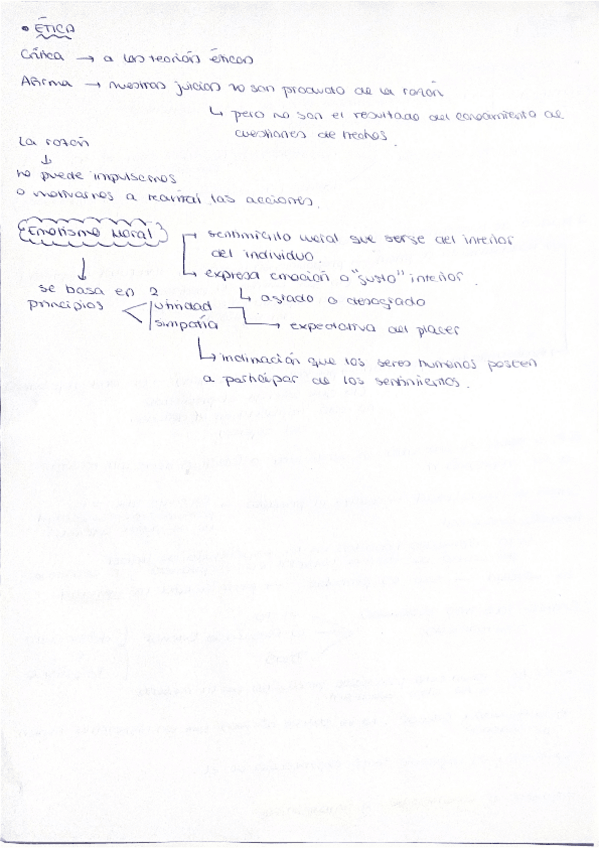 • ÉTICA
Crítica → a las teorías éticas
Afirma → nuestros juicios no son producto de la razón
↳ pero no son el resultado del conocimiento de
cuestiones de hechos.
La razón
↓
no puede impulsarnos
o motivarnos a realizar las acciones.
Emotivismo Moral
sentimiento moral que surge del interior
del individuo.
expresa emoción o "gusto" interior.
↳ agrado o desagrado
se basa en 2
principios
utilidad
simpatía
→ expectativa del placer
↳ inclinación que los seres humanos poseen
a participar de los sentimientos.